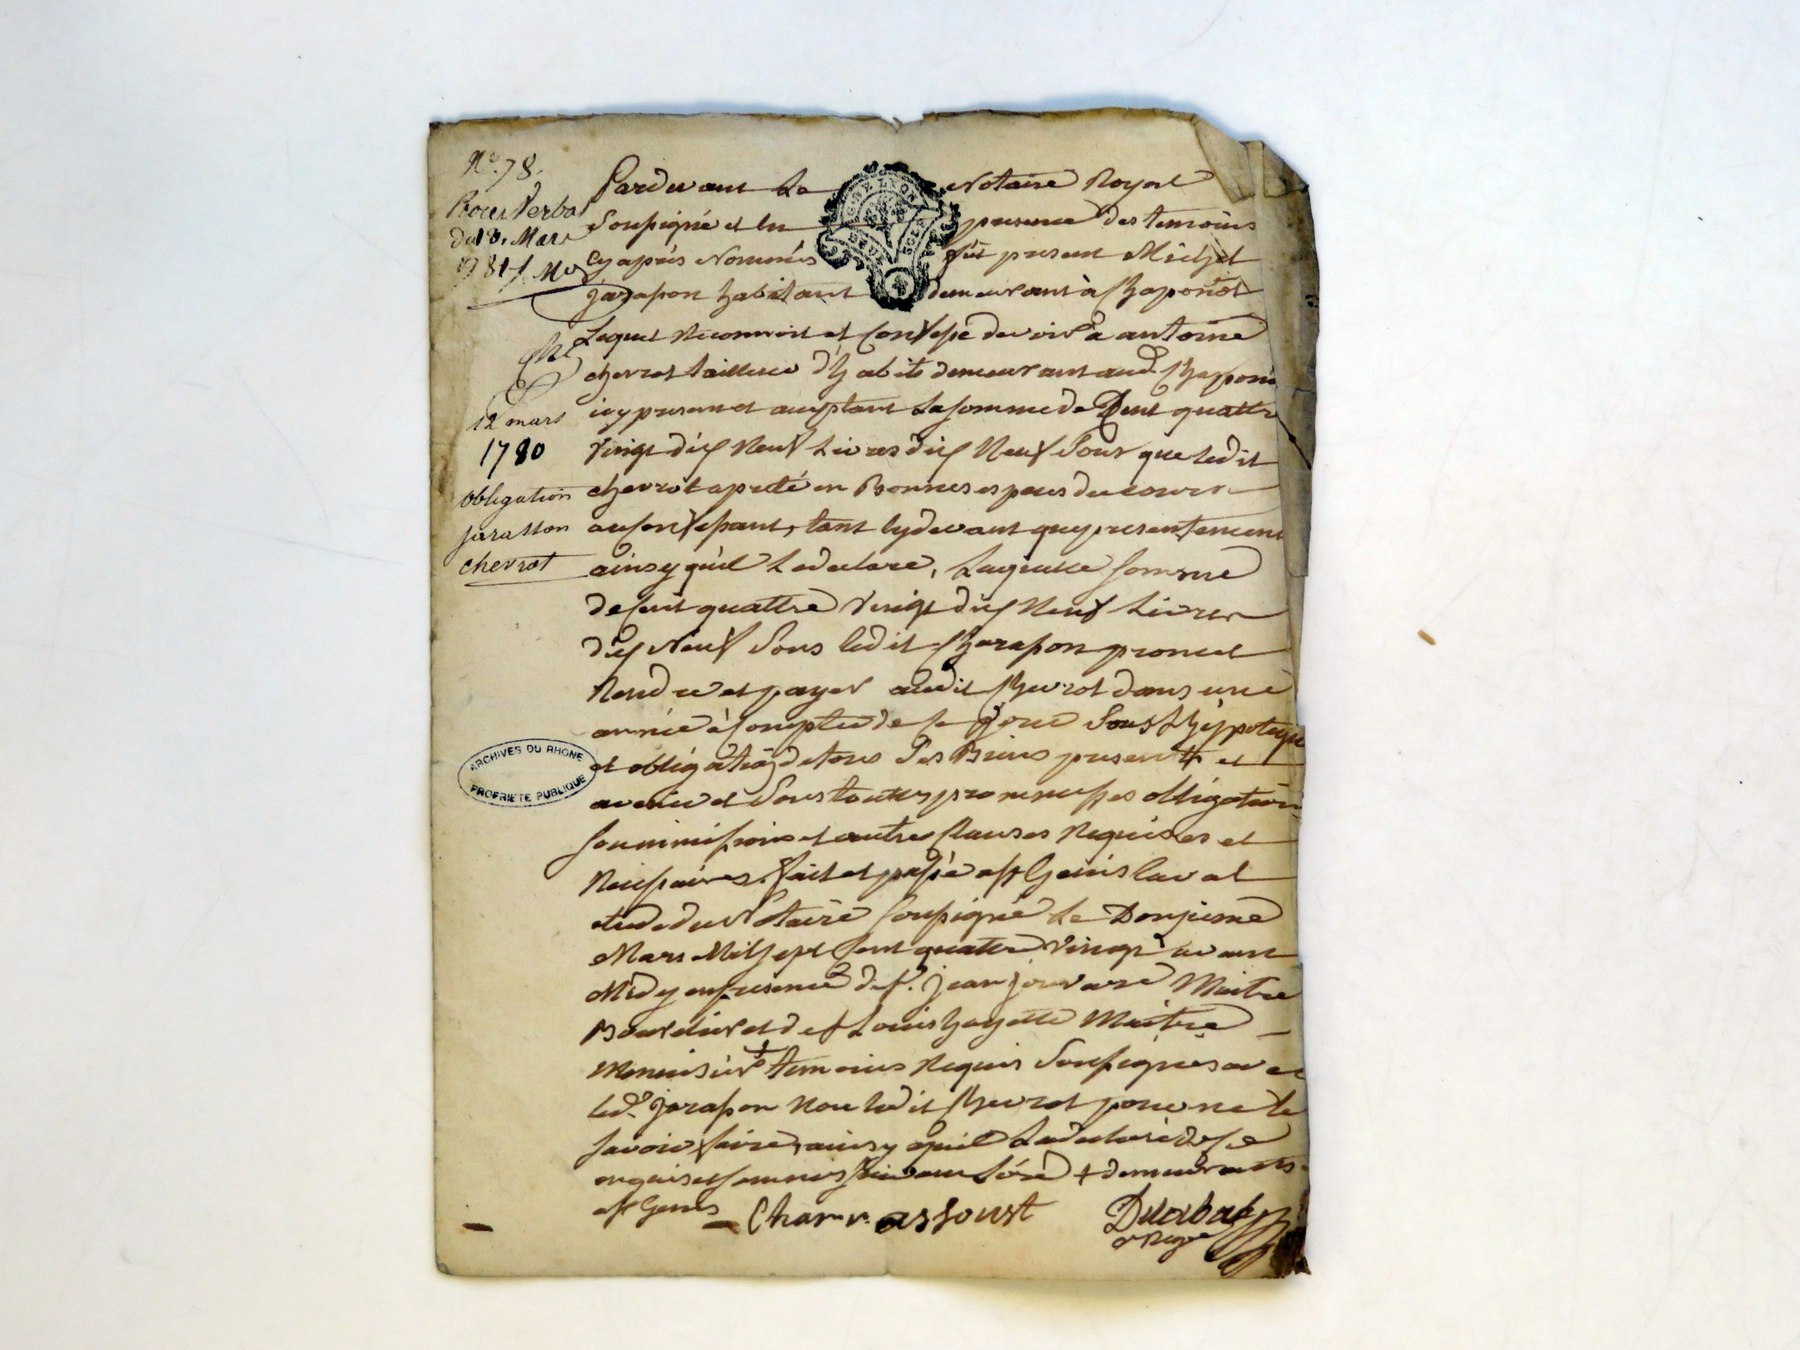 N° 78.
Proces Verbal
du 18. Mars
1781
12 mars
1780
obligation
jarasson
chevrot
Pardevant Le Notaire Royal
Soussigné et en presence des temoins
cy après Nommés fut present Michel
jarasson habitant demeurant à Chaponost
Lequel Reconnoit et Confesse devoir à antoine
chevrot tailleur d'habits demeurant aud. Chapono
icy present et acceptant La somme de Cent quattre
Vingt dix Neuf Livres dix Neuf Sous que ledit
chevrot a preté en Bonnes especes du cours
au Confessant, tant cydevant que presentement
ainsy qu'il Le declare, Laquelle somme
de Cent quattre Vingt dix Neuf Livres
dix Neuf Sous ledit Charasson promet
Rendre et payer audit Chevrot dans une
année à Compter de ce jour Sous L'hÿpoteque
et obligation de tous Ses Biens presents et
avenir et Sous toutes promesses obligations
soummissions et autres Clauses Requises et
Necessaires. fait et passé a St Genis laval
etude du Notaire soussigné Le Douzieme
Mars Mil sept Cent quatre Vingt avant
Midy en presence de Sr. jean jouvare Maitre
Bourelier et de Sr Louis hayette Maitre
Menuisier + temoins Requis Soussignés avec
led. jarasson Non ledit Chevrot pour ne le
savoir faire, ainsy qu'il La declaré de ce
enquis et sommé suivant L'ordce + demeurants
a St Genis
Charassoust
ARCHIVES DU RHONE
PROPRIETE PUBLIQUE